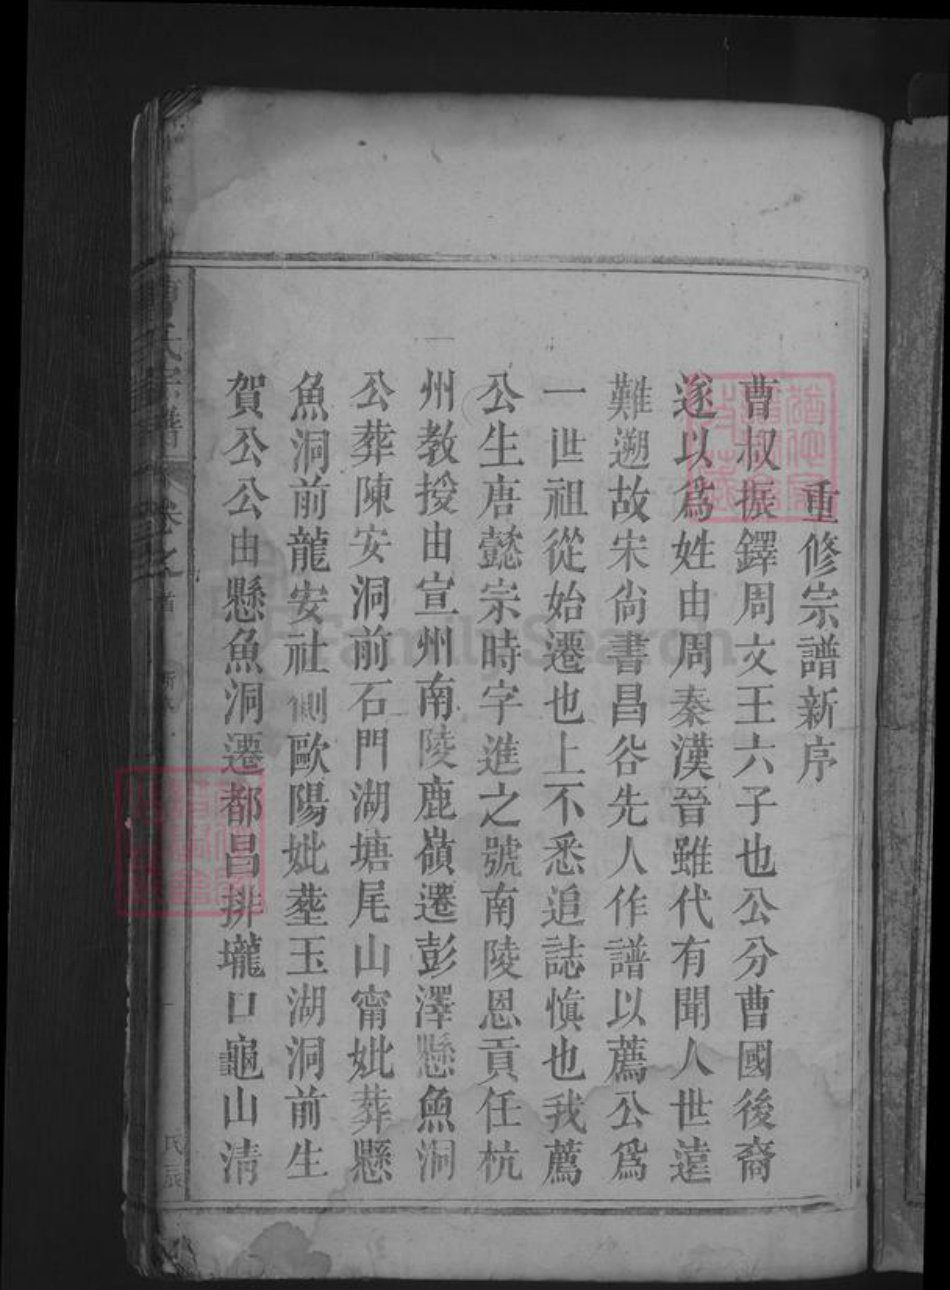 重修宗譜新序
曹叔振鐸周文王六子也公分曹國後裔
遂以爲姓由周秦漢晉雖代有聞人世遠
難遡故宋尙書昌谷先人作譜以薦公爲
一世祖從始遷也上不悉追誌愼也我薦
公生唐懿宗時字進之號南陵恩貢任杭
州教授由宣州南陵鹿嶺遷彭澤懸魚洞
公葬陳安洞前石門湖塘尾山甯妣葬懸
魚洞前龍安社側歐陽妣塟玉湖洞前生
賀公公由懸魚洞遷都昌排壠口龜山清
曹氏宗譜 卷之首
FamilySearch